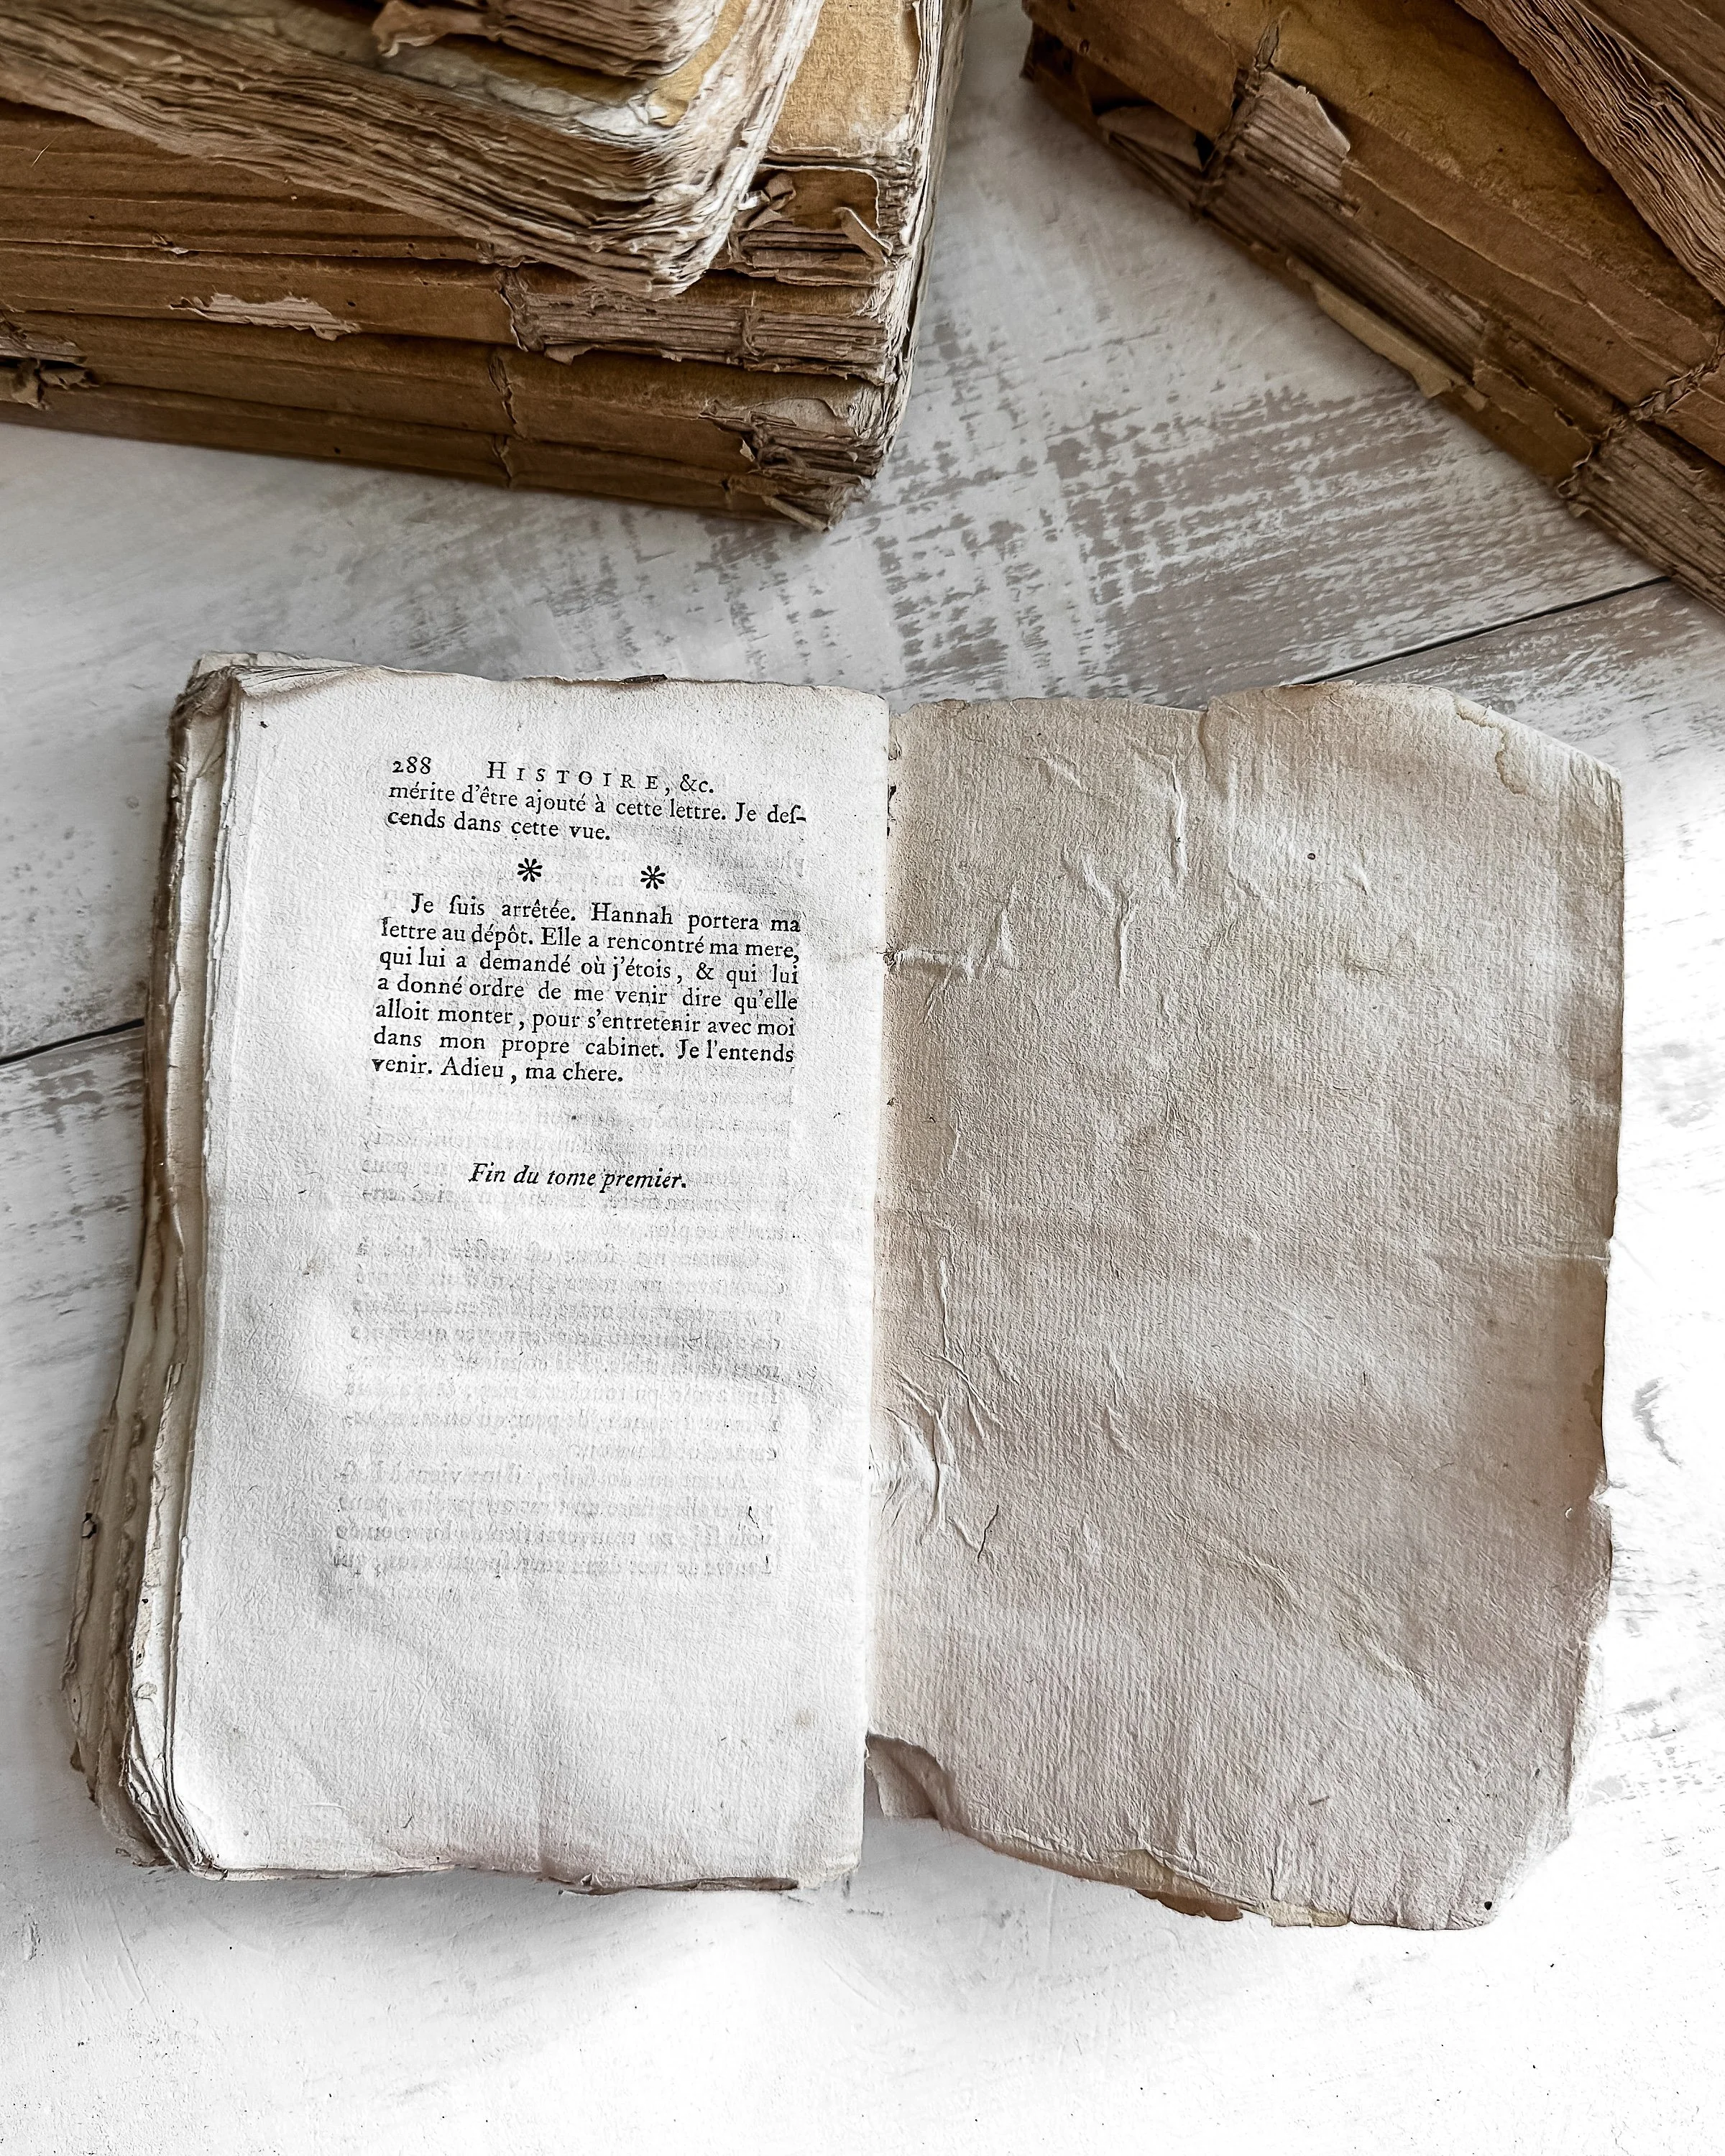 288 HISTOIRE, &c.
mérite d'être ajouté à cette lettre. Je deſ-
cends dans cette vue.
* *
Je ſuis arrêtée. Hannah portera ma
lettre au dépôt. Elle a rencontré ma mere,
qui lui a demandé où j'étois, & qui lui
a donné ordre de me venir dire qu'elle
alloit monter, pour s'entretenir avec moi
dans mon propre cabinet. Je l'entends
venir. Adieu, ma chere.
Fin du tome premier.